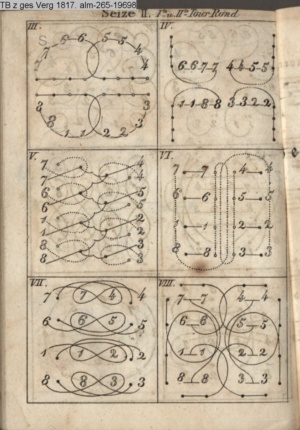 TB z ges Verg 1817. alm-265-19698
Seize II. 1r u. IIr Tour Rond
III.
6 6 5 5
7 4
7 4
8 3
8 3
1 1 2 2
IV.
6 6 7 7 4 4 5 5
1 1 8 8 3 3 2 2
V.
7 4
7 4
6 5
6 5
1 2
1 2
8 3
8 3
VI.
7 7 4 4
6 6 5 5
1 1 2 2
8 8 3 3
VII.
7 7 4 4
6 6 5 5
1 1 2 2
8 8 3 3
VIII.
7 7 4 4
6 6 5 5
1 1 2 2
8 8 3 3